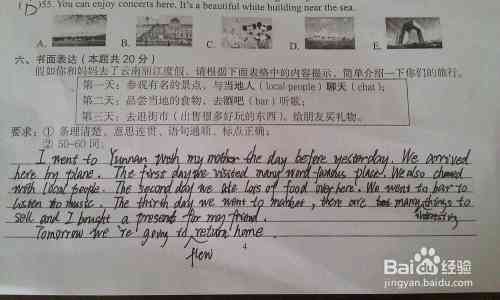 (D)55. You can enjoy concerts here. It's a beautiful white building near the sea.
A. B. C. D. E.
六、书面表达(本题共20分)
假如你和妈妈去了云南丽江度假。请根据下面表格中的内容提示，简单介绍一下你们的旅行。
第一天：参观有名的景点，与当地人(local people)聊天(chat)；
第二天：品尝当地的食物，去酒吧(bar)听歌；
第三天：去逛街市(出售很多好玩的东西)，给朋友买礼物。
要求：① 条理清楚、意思连贯、语句通顺、标点正确；
② 50-60词；
I went to Yunnan with my mother the day before yesterday. We arrived
here by plane. The first day we visited many famous place. We also chated
with local people. The second day we ate lots of food over here. We went to bar to
listen to music. The thirth day we went to market, there are many things to
interesting
sell and I bought a present for my friend.
Tomorrow we're going to return home.
flew
4
Baidu 经验
jingyan.baidu.com